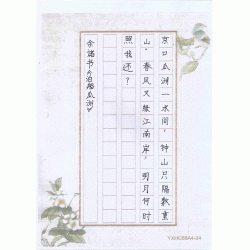 京口瓜洲一水间，钟山只隔数重
山。春风又绿江南岸，明月何时
照我还？
余诺书《泊船瓜洲》